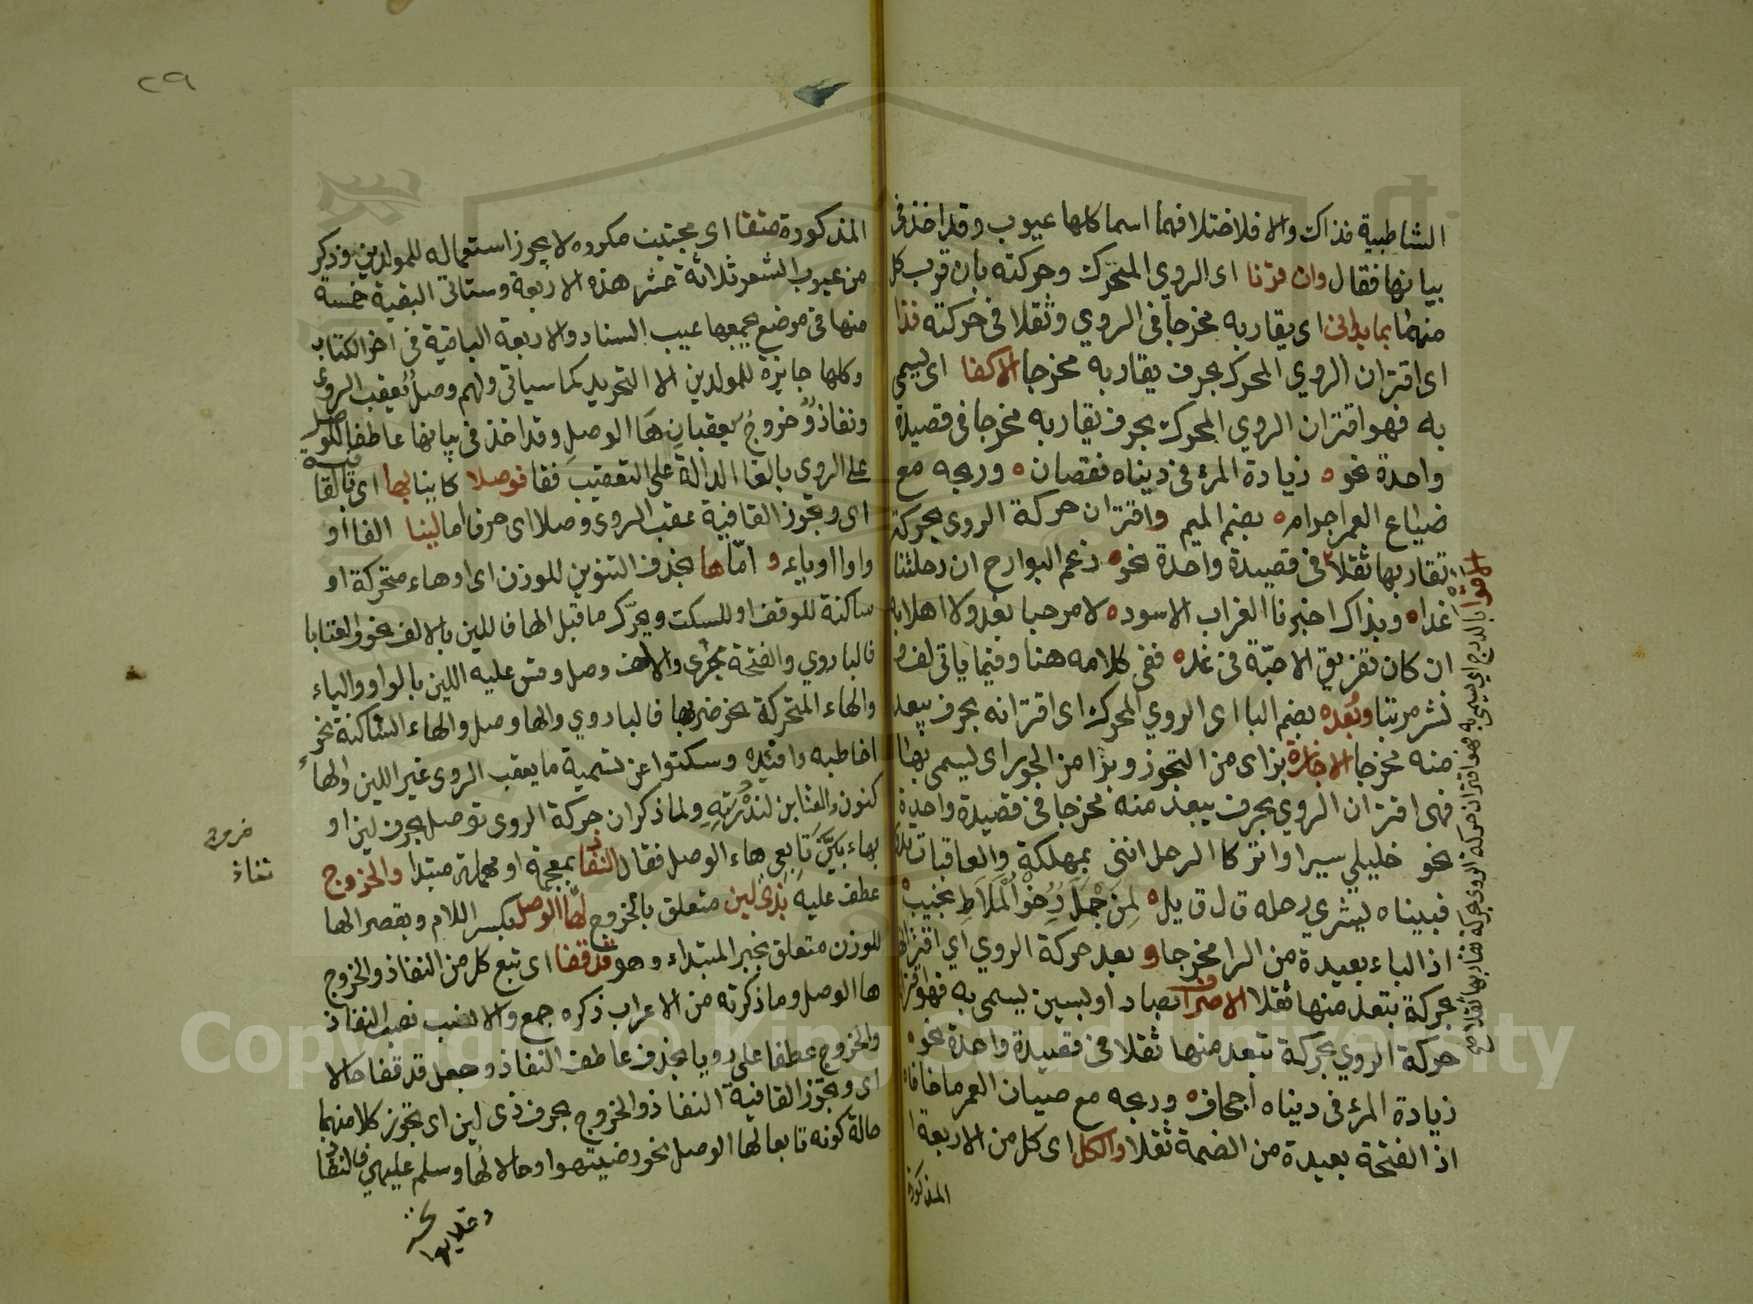 الشاطبية فذاك والا فلاختلافهما اسما كلها عيوب وقد اخذ في
بيانها فقال وان قرنا اى الروي المتحرك وحركته بان قرب كل
منهما بما يدانى اى يقاربه مخرجا فى الروي وثقلا فى حركته فذا
اى اقتران الروي المحرك بحرف يقاربه مخرجا الاكفا اى يسمى
به فهو اقتران الروي المحرك بحرف يقاربه مخرجا فى قصيدة
واحدة نحو ه زيادة المرء فى ديناه نقصان ه وربحه مع
ضياع العمر اجرام ه بضم الميم واقتران حركة الروي بحركة
تقاربها ثقلا فى قصيدة واحدة نحو ه زعم البوارح ان رحلتنا
غدا ه وبذاك اخبرنا الغراب الاسود ه لا مرحبا بغد ولا اهلا به
ان كان تفريق الاحبة فى غد ه ففى كلامه هنا وفيما ياتى لف و
نشر مرتبا وبعده بضم البا اى الروي المحرك اى اقترانه بحرف يبعد
منه مخرجا الاجازة بزاى من التجوز وبرا من الجور اى يسمى بها
فهى اقتران الروي بحرف يبعد منه مخرجا فى قصيدة واحدة
نحو خليلي سيرا واتركا الرحل اننى بمهلكة والعاقبات تدور
فبيناه يشري رحله قال قايل ه لمن جمل رخو الملاط نجيب
اذ الباء بعيدة من الرا مخرجا و بعد حركة الروي اي اقترانها
بحركة تبعد منها ثقلا الاصراف بصاد او بسين يسمى به فهو اقتران
حركة الروي بحركة تبعد منها ثقلا فى قصيدة واحدة نحو ه
زيادة المرء فى ديناه اجحاف ه وربحه مع صيان العمر ما خافا ه
اذ الفتحة بعيدة من الضمة ثقلا والكل اى كل من الاربعة
المذكورة
الاقوا بالدرج اي يسمى به فهو اقتران حركة الروي بحركة تقاربها ثقلا
٢٩
المذكورة متقا اى مجتنب مكروه لا يجوز استعماله للمولدين وذكر
من عيوب الشعر ثلاثة عشر هذه الاربعة وستاتى البقية خمسة
منها فى موضع يجمعها عيب السناد والاربعة الباقية فى اخر الكتاب
وكلها جايزة للمولدين الا التحريد كما سياتى ولهم وصل يعقب الروى
ونفاذ وخروج يعقبان ها الوصل وقد اخذ فى بيانها عاطفا للوصل
على الروى بالفا الدالة على التعقيب فقا فوصلا كابنا بها اى بالقافية
اى وتحوز القافية عقب الروى وصلا اى حرفا اما لينا الفا او
واوا او ياء و اما ها بحذف التنوين للوزن اى او هاء متحركة او
ساكنة للوقف او للسكت ويحرك ما قبل الها فاللين بالالف نحو والعتابا
فالبا روي والفتحة مجرى والالف وصل وقس عليه اللين بالواو والياء
والهاء المتحركة نحو ضربها فالبا روي والها وصل والهاء الساكنة نحو
اخاطبه واقتده وسكتوا عن تسمية ما يعقب الروى غير اللين والهاء
كنون والعتابن لندرته ولما ذكر ان حركة الروى توصل بحرف لين او
بهاء بين تابعى هاء الوصل فقال النفاذ بمعجمة او مهملة مبتدا والخروج
عطف عليه بذى لين متعلق بالخروج لها الوصل بكسر اللام وبقصر الها
للوزن متعلق بخبر المبتداء وهو قد قفا اى تبع كل من النفاذ والخروج
ها الوصل وما ذكرته من الاعراب ذكره جمع والانسب نصب النفاذ
والخروج عطفا على رويا بحذف عاطف النفاذ وجعل قد قفا حالا
اى وتحوز القافية النفاذ والخروج بحرف ذى لين اى تحوز كلا منهما
حالة كونه تابعا لها الوصل نحو رضيتهوا وحالالها وسلم عليهي فالنفاذ
خروج
نفاذ
Copyright © King Saud University